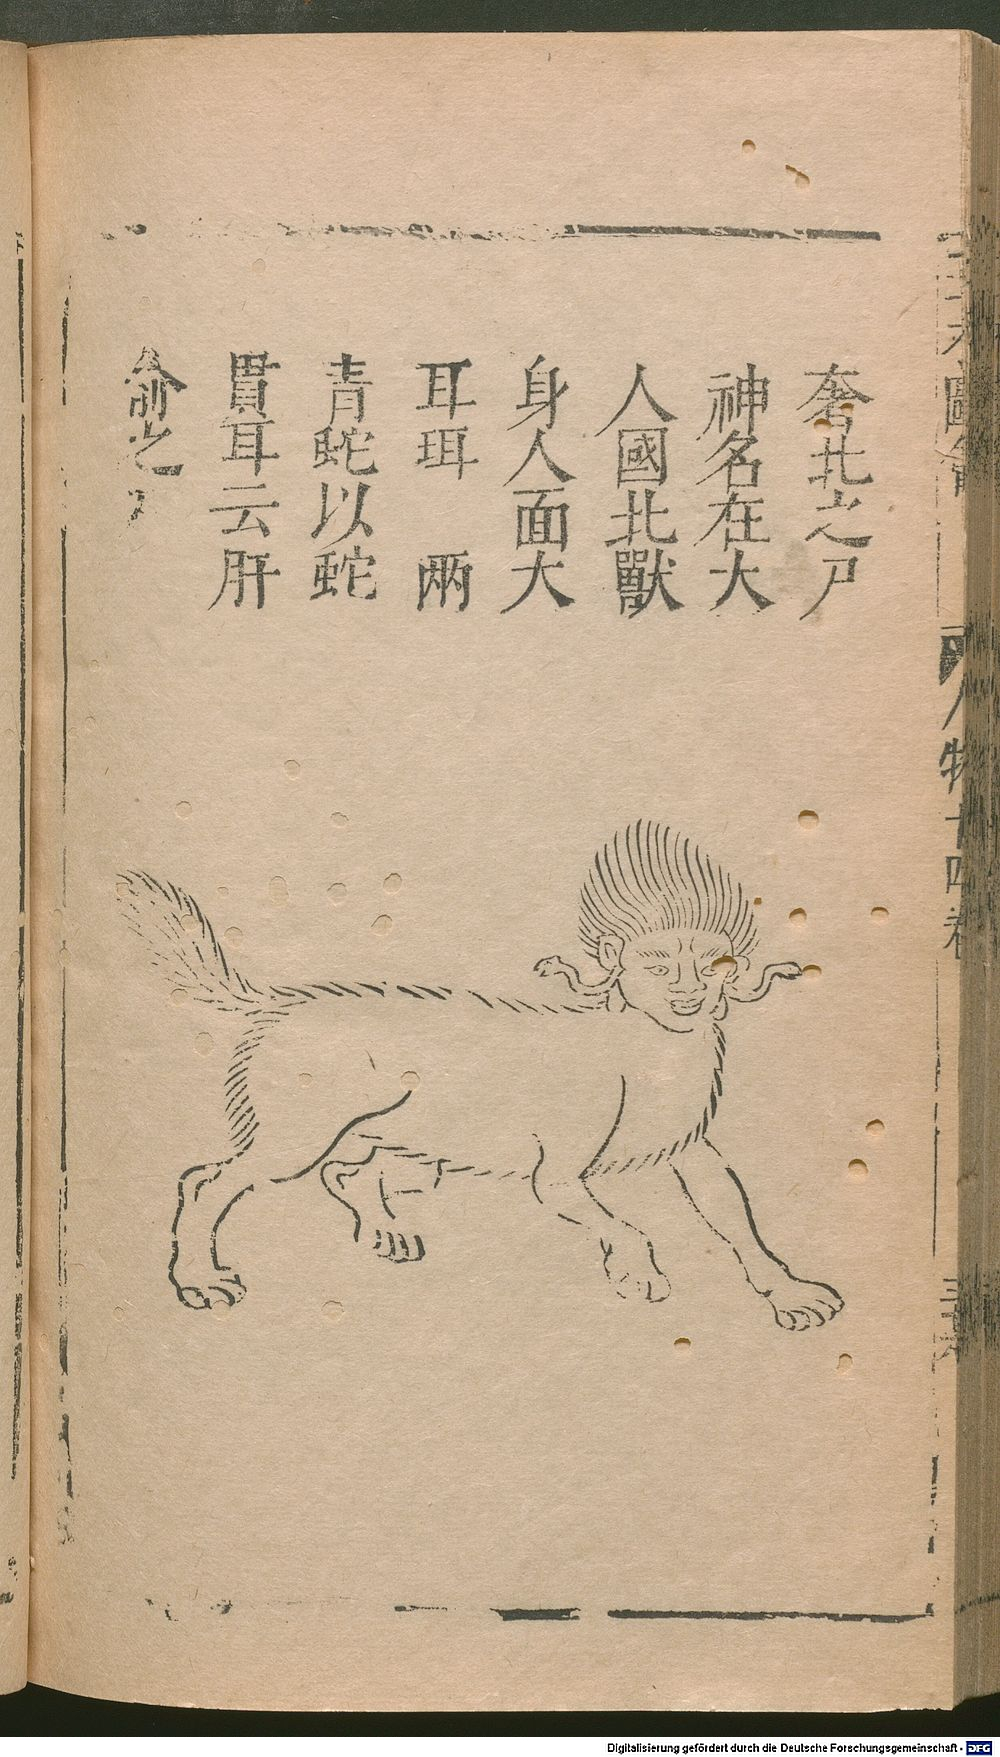 奢北之尸
神名在大
人國北獸
身人面大
耳珥 兩
青蛇以蛇
貫耳云肝
俞之
人物十四卷
Digitalisierung gefördert durch die Deutsche Forschungsgemeinschaft - DFG